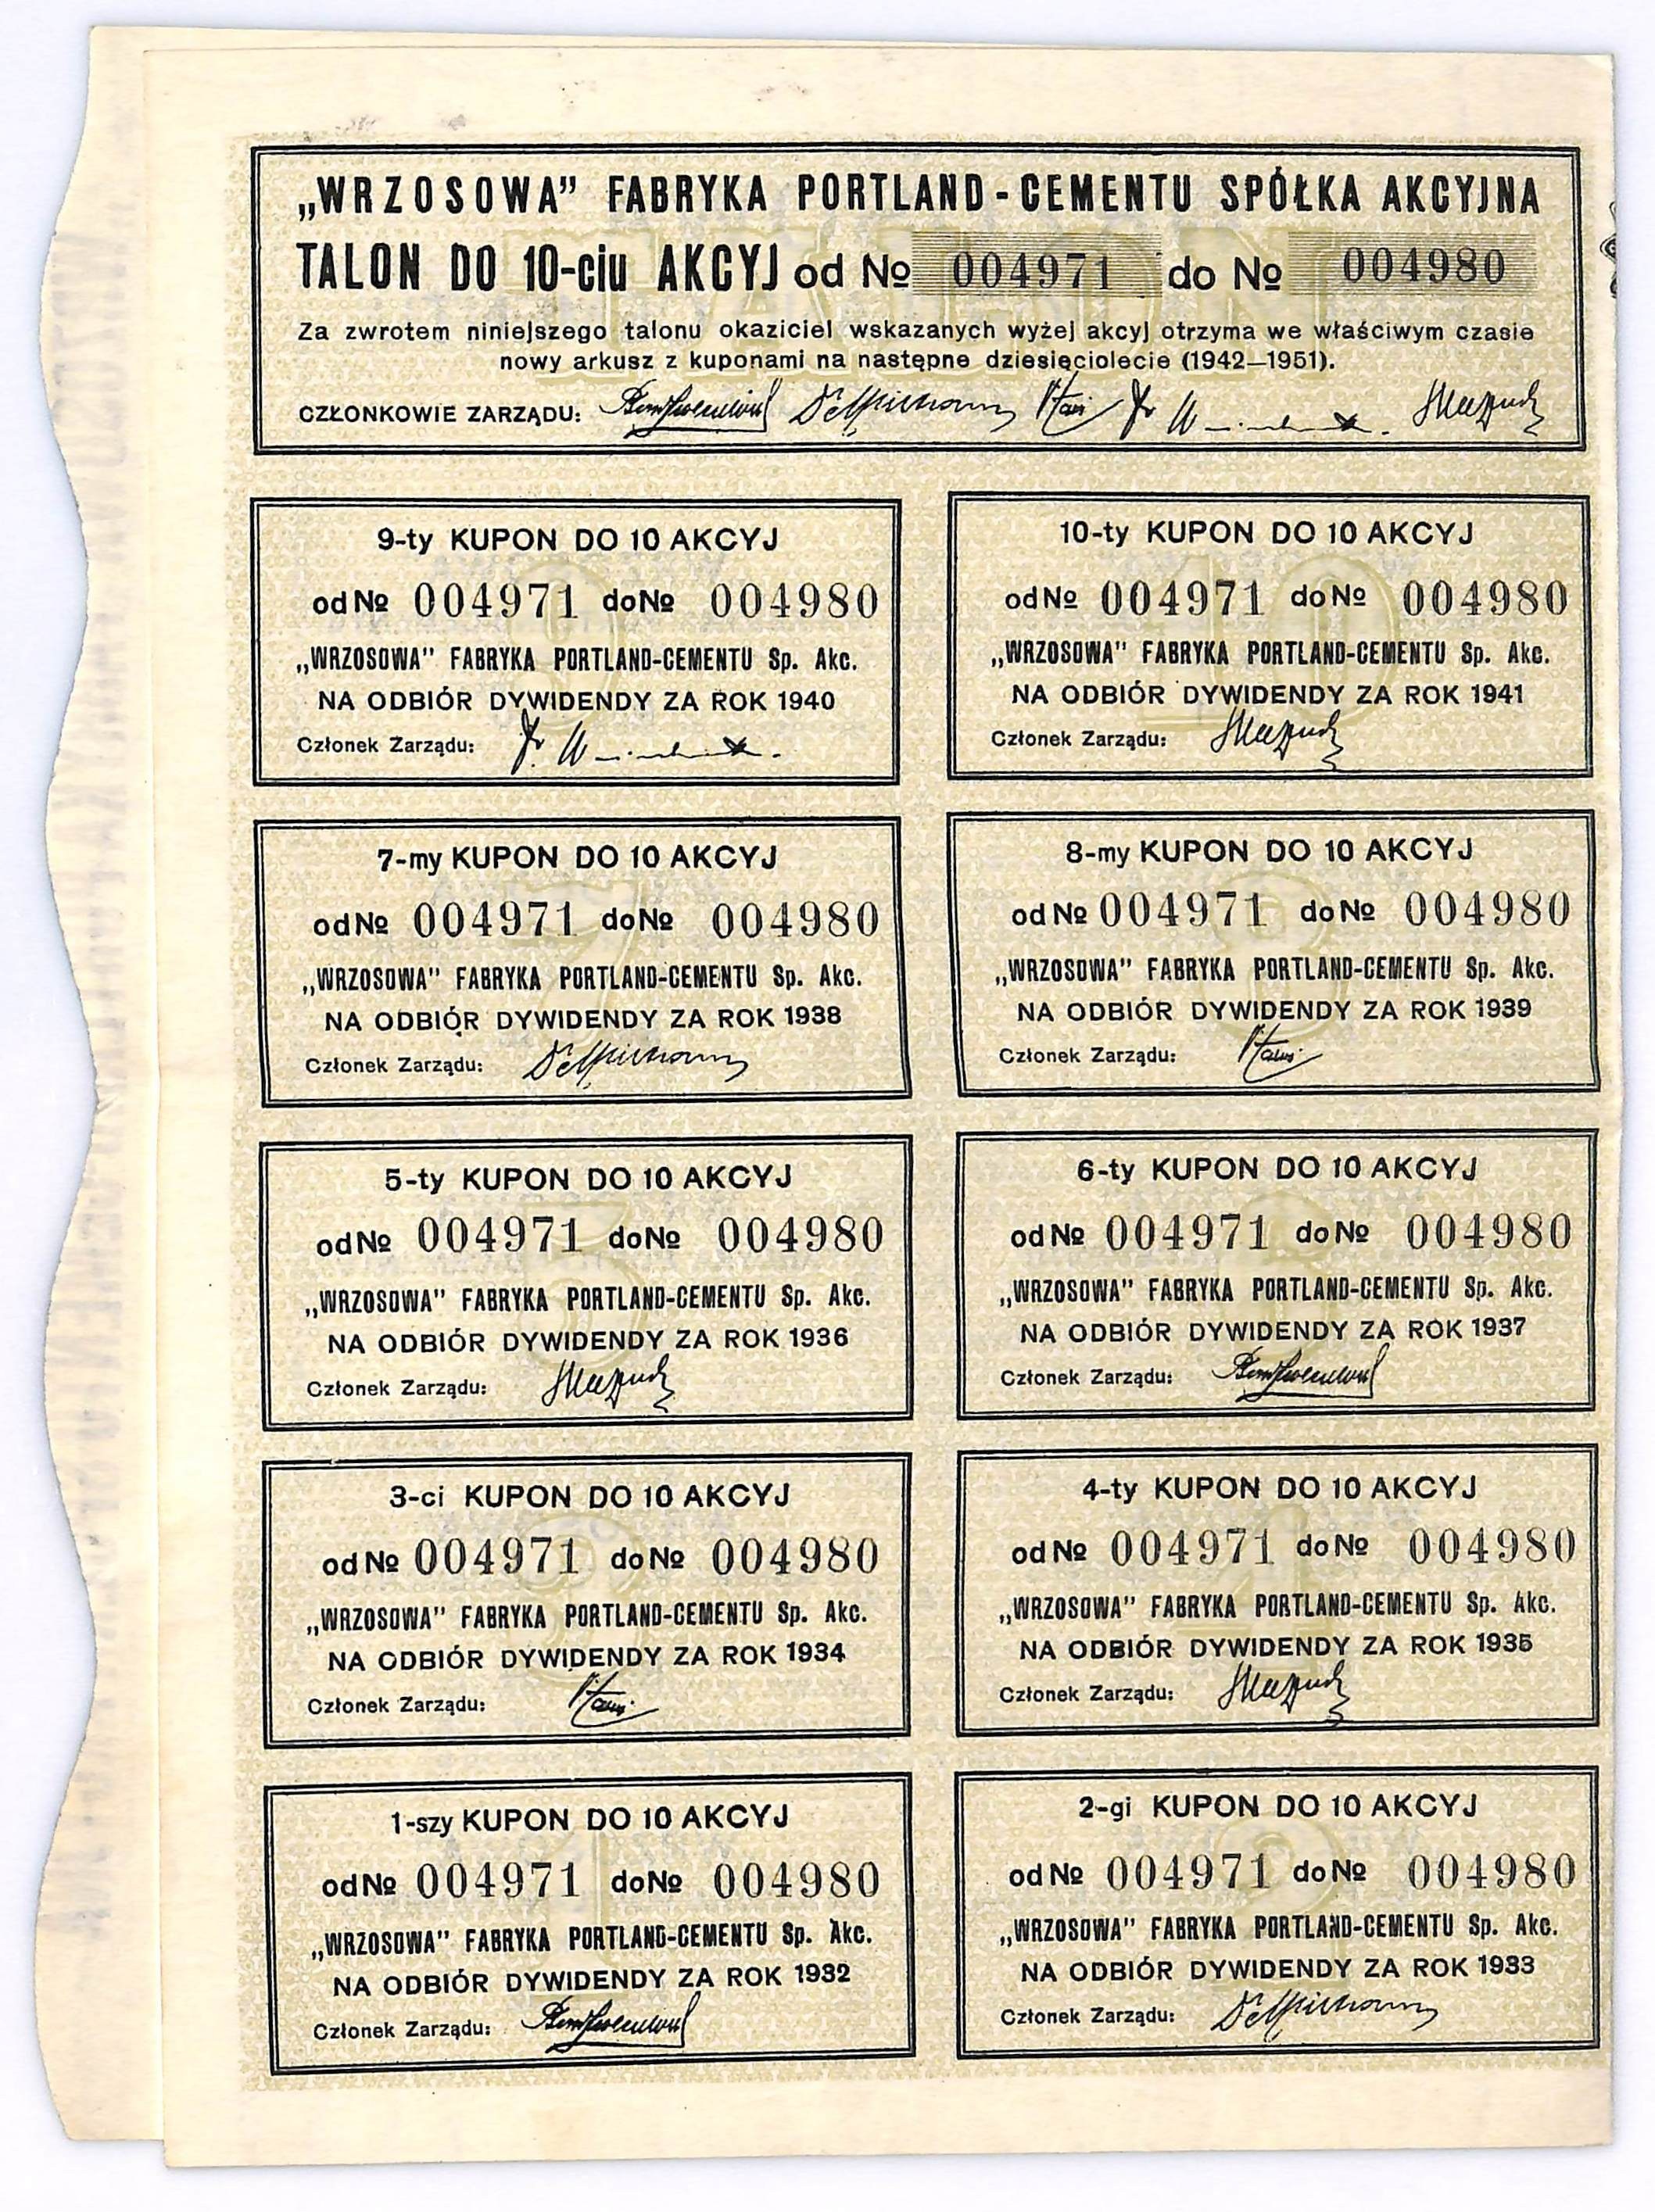 „WRZOSOWA” FABRYKA PORTLAND-CEMENTU SPÓŁKA AKCYJNA
TALON DO 10-ciu AKCYJ od № 004971 do № 004980
Za zwrotem niniejszego talonu okaziciel wskazanych wyżej akcyj otrzyma we właściwym czasie
nowy arkusz z kuponami na następne dziesięciolecie (1942—1951).
CZŁONKOWIE ZARZĄDU:
9-ty KUPON DO 10 AKCYJ
od № 004971 do № 004980
„WRZOSOWA” FABRYKA PORTLAND-CEMENTU Sp. Akc.
NA ODBIÓR DYWIDENDY ZA ROK 1940
Członek Zarządu:
10-ty KUPON DO 10 AKCYJ
od № 004971 do № 004980
„WRZOSOWA” FABRYKA PORTLAND-CEMENTU Sp. Akc.
NA ODBIÓR DYWIDENDY ZA ROK 1941
Członek Zarządu:
7-my KUPON DO 10 AKCYJ
od № 004971 do № 004980
„WRZOSOWA” FABRYKA PORTLAND-CEMENTU Sp. Akc.
NA ODBIÓR DYWIDENDY ZA ROK 1938
Członek Zarządu:
8-my KUPON DO 10 AKCYJ
od № 004971 do № 004980
„WRZOSOWA” FABRYKA PORTLAND-CEMENTU Sp. Akc.
NA ODBIÓR DYWIDENDY ZA ROK 1939
Członek Zarządu:
5-ty KUPON DO 10 AKCYJ
od № 004971 do № 004980
„WRZOSOWA” FABRYKA PORTLAND-CEMENTU Sp. Akc.
NA ODBIÓR DYWIDENDY ZA ROK 1936
Członek Zarządu:
6-ty KUPON DO 10 AKCYJ
od № 004971 do № 004980
„WRZOSOWA” FABRYKA PORTLAND-CEMENTU Sp. Akc.
NA ODBIÓR DYWIDENDY ZA ROK 1937
Członek Zarządu:
3-ci KUPON DO 10 AKCYJ
od № 004971 do № 004980
„WRZOSOWA” FABRYKA PORTLAND-CEMENTU Sp. Akc.
NA ODBIÓR DYWIDENDY ZA ROK 1934
Członek Zarządu:
4-ty KUPON DO 10 AKCYJ
od № 004971 do № 004980
„WRZOSOWA” FABRYKA PORTLAND-CEMENTU Sp. Akc.
NA ODBIÓR DYWIDENDY ZA ROK 1935
Członek Zarządu:
1-szy KUPON DO 10 AKCYJ
od № 004971 do № 004980
„WRZOSOWA” FABRYKA PORTLAND-CEMENTU Sp. Akc.
NA ODBIÓR DYWIDENDY ZA ROK 1932
Członek Zarządu:
2-gi KUPON DO 10 AKCYJ
od № 004971 do № 004980
„WRZOSOWA” FABRYKA PORTLAND-CEMENTU Sp. Akc.
NA ODBIÓR DYWIDENDY ZA ROK 1933
Członek Zarządu: